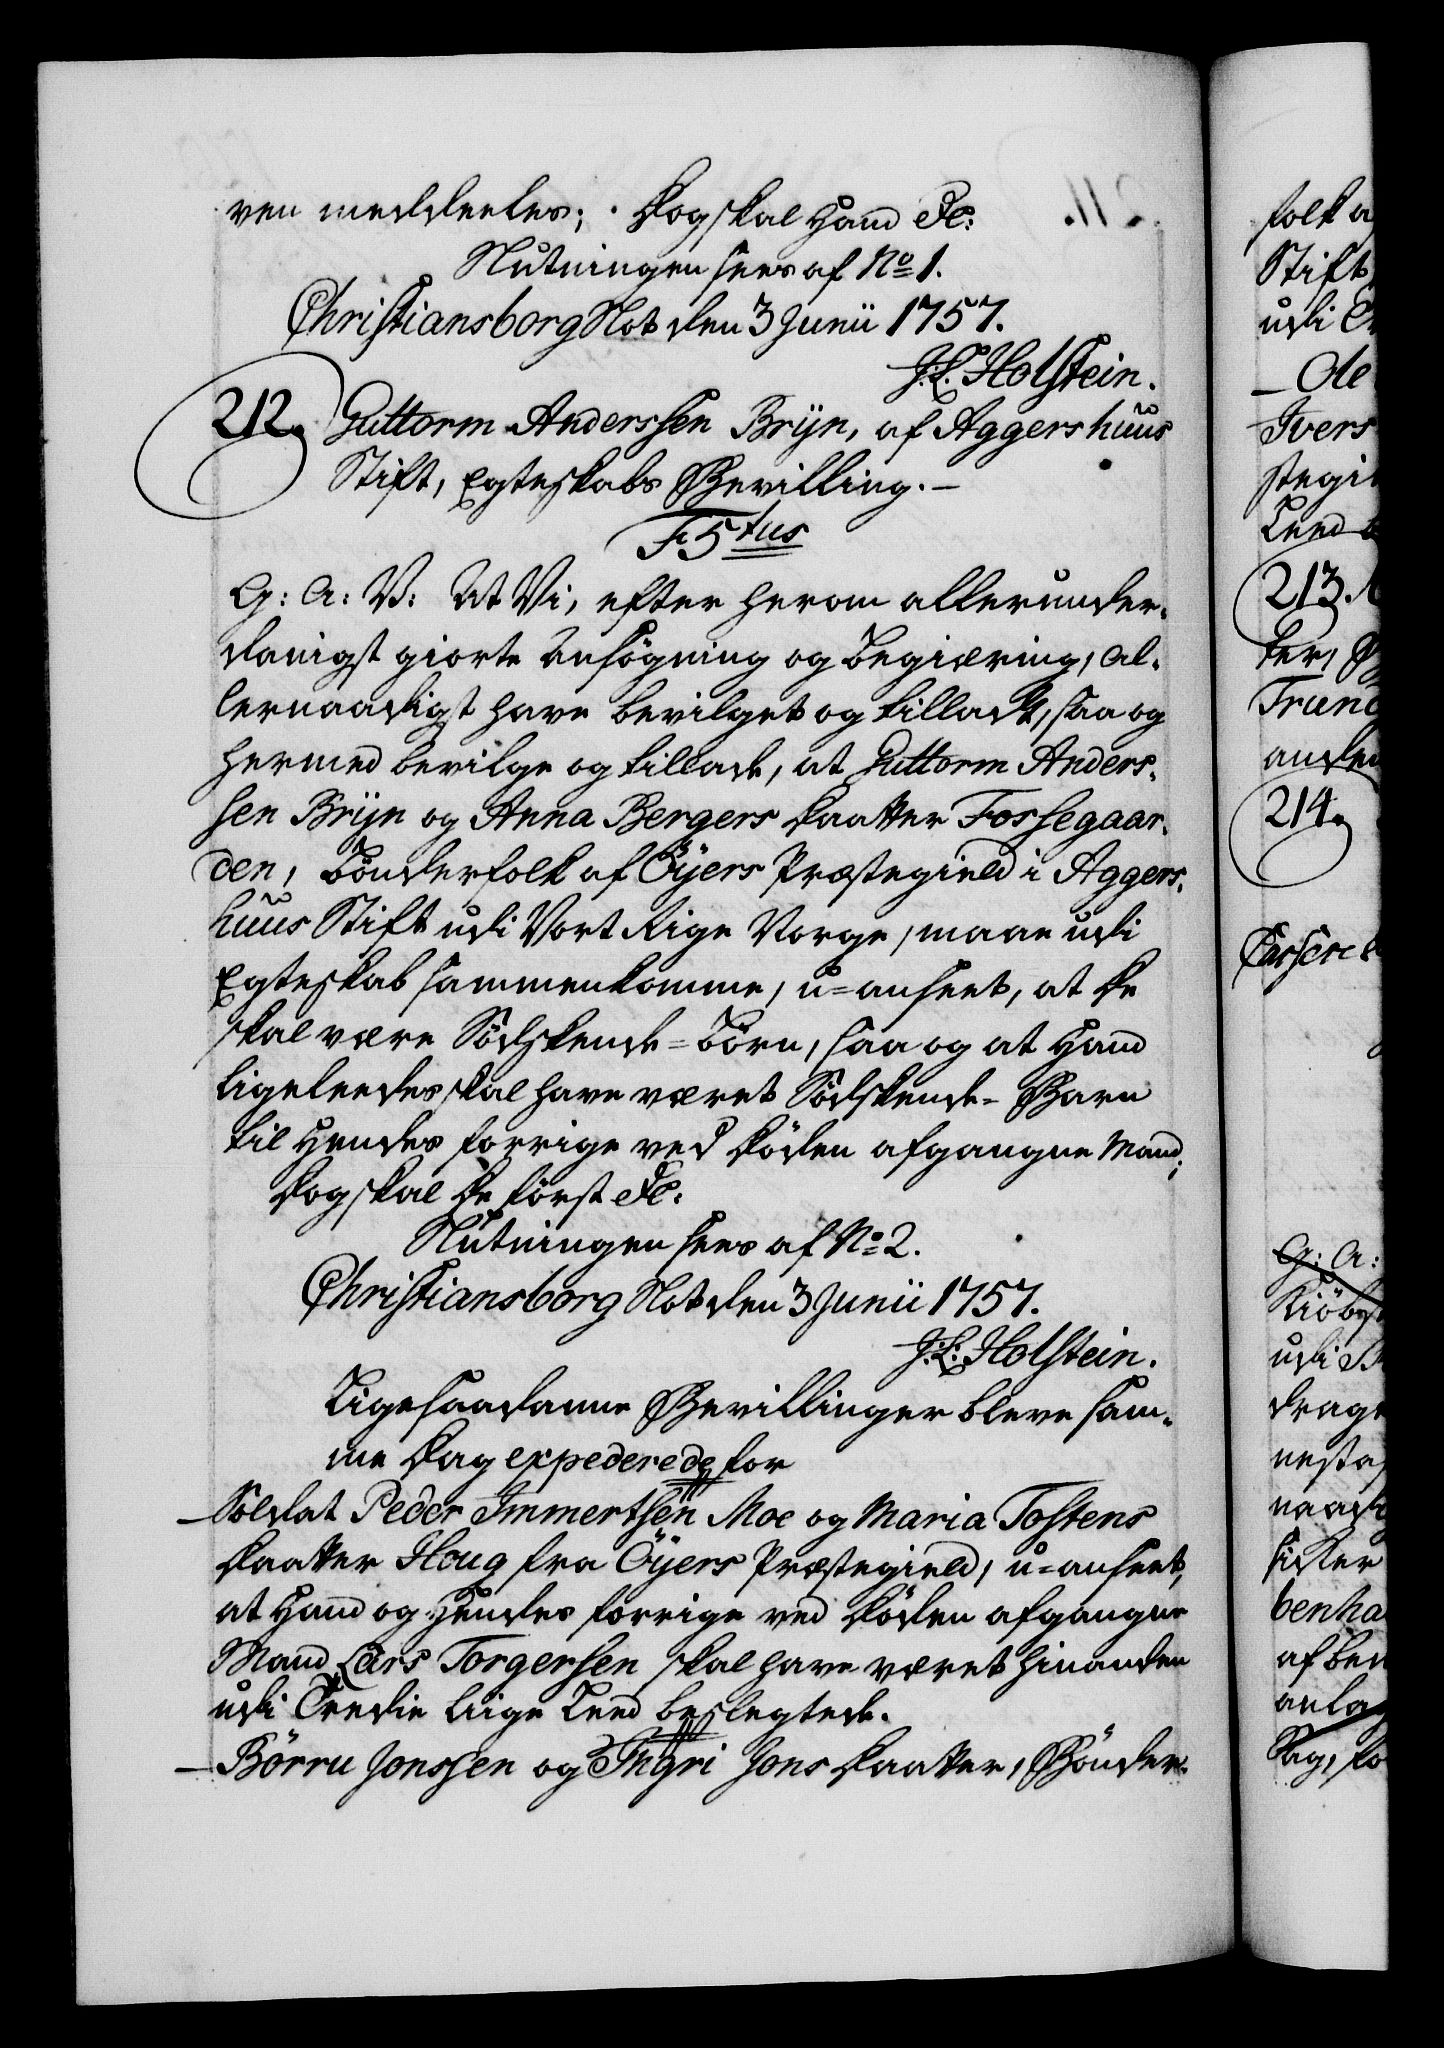 ven meddeeles; Dog skal Hand &c:
Slutningen sees af No 1.
Christiansborg Slot den 3 Junii 1757.
J. L. Holstein.
212. Guttorm Anderssen Brÿn, af Aggershuus
Stift, Egteskabs Bevilling.—
F 5tus
G: A: V: At Vi, efter herom allerunder-
danigst giorte Ansøgning og Begiæring, al-
lernaadigst have bevilget og tilladt, saa og
hermed bevilge og tillade, at Guttorm Anders-
sen Brÿn og Anna Bergers Daatter Fossegaar-
den, Bönderfolk af Öÿers Præstegield i Aggers-
huus Stift udi Vort Rige Norge, maae udi
Egteskab sammenkomme, u-anseet, at De
skal være Södskende-Börn, saa og at Hand
ligeleedes skal have været Södskende-Barn
til Hendes forrige ved Döden afgangne Mand;
Dog skal De først &c:
Slutningen sees af No 2.
Christiansborg Slot den 3 Junii 1757.
J: L: Holstein.
Ligesaadanne Bevillinger bleve sam-
me Dag expederede for
— Soldat Peder Immertsen Moe og Maria Tostens
Daatter Houg fra Öÿers Præstegield, u-anseet,
at Hand og Hendes forrige ved Döden afgangne
Mand Lars Torgersen skal have været hinanden
udi Tredie liige Leed beslegtede.
— Börru Jonssen og Thgri Jons Daatter, Bönder-
folk a
Stift
udi
— de
Ivers
stegi
Leed
213.
ter,
Trund
anden
214.
G: A:
Kiöbst
udi
drag
nest
naadi
sicker
benha
af ben
anla
Sag, fo